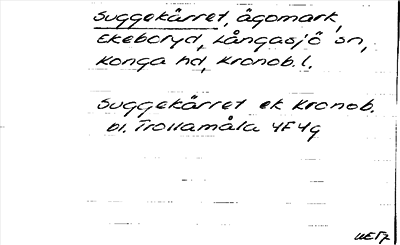 Suggekärret, ägomark,
Ekeboryd, Långasjö sn,
Konga hd, Kronob. l.
Suggekärret ek Kronob.
bl. Trollamåla 4F4g